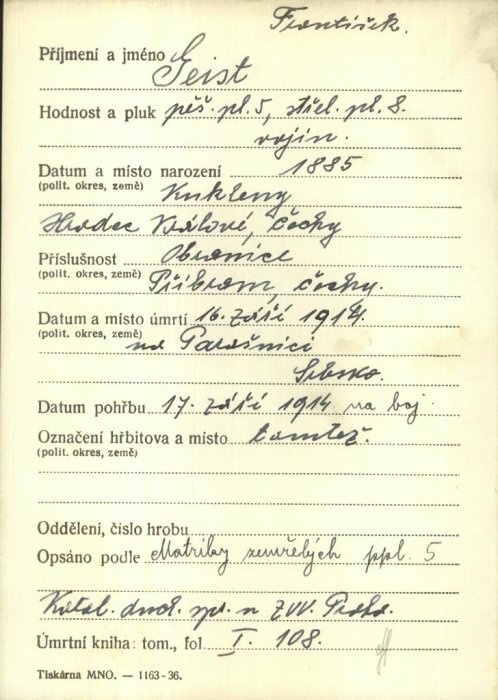 František.
Příjmení a jméno Geist
Hodnost a pluk pěš. pl. 5, střel. pl. 8.
vojín.
Datum a místo narození 1885
(polit. okres, země) Kukleny
Hradec Králové, Čechy
Příslušnost Obranice
(polit. okres, země) Příbram, Čechy.
Datum a místo úmrtí 16. září 1914.
(polit. okres, země) na Parašnici
Srbsko.
Datum pohřbu 17. září 1914 na boj.
Označení hřbitova a místo tamtéž.
(polit. okres, země)
Oddělení, číslo hrobu
Opsáno podle Matriky zemřelých ppl. 5
Katol. duch. spr. u ZVV. Praha.
Úmrtní kniha: tom., fol. I. 108.
Tiskárna MNO. — 1163-36.